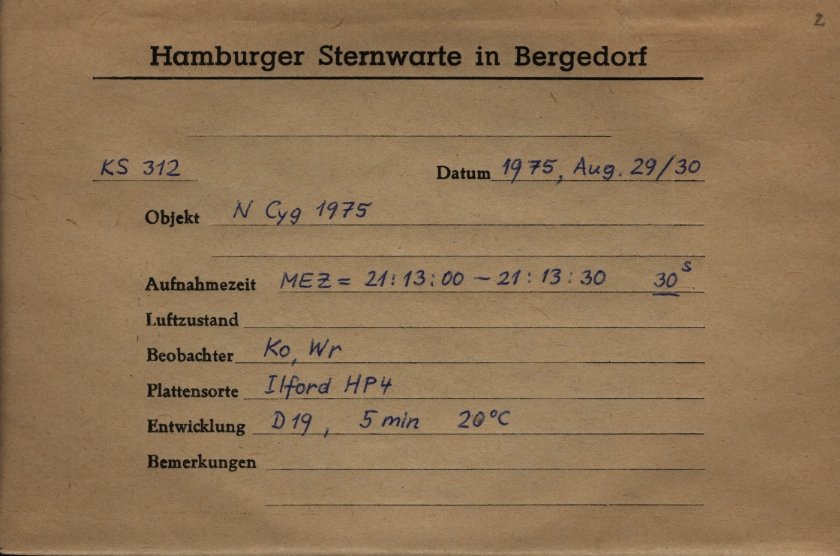 2
Hamburger Sternwarte in Bergedorf
KS 312 Datum 1975, Aug. 29/30
Objekt N Cyg 1975
Aufnahmezeit MEZ = 21:13:00 – 21:13:30 30s
Luftzustand
Beobachter Ko, Wr
Plattensorte Ilford HP4
Entwicklung D19, 5 min 20°C
Bemerkungen